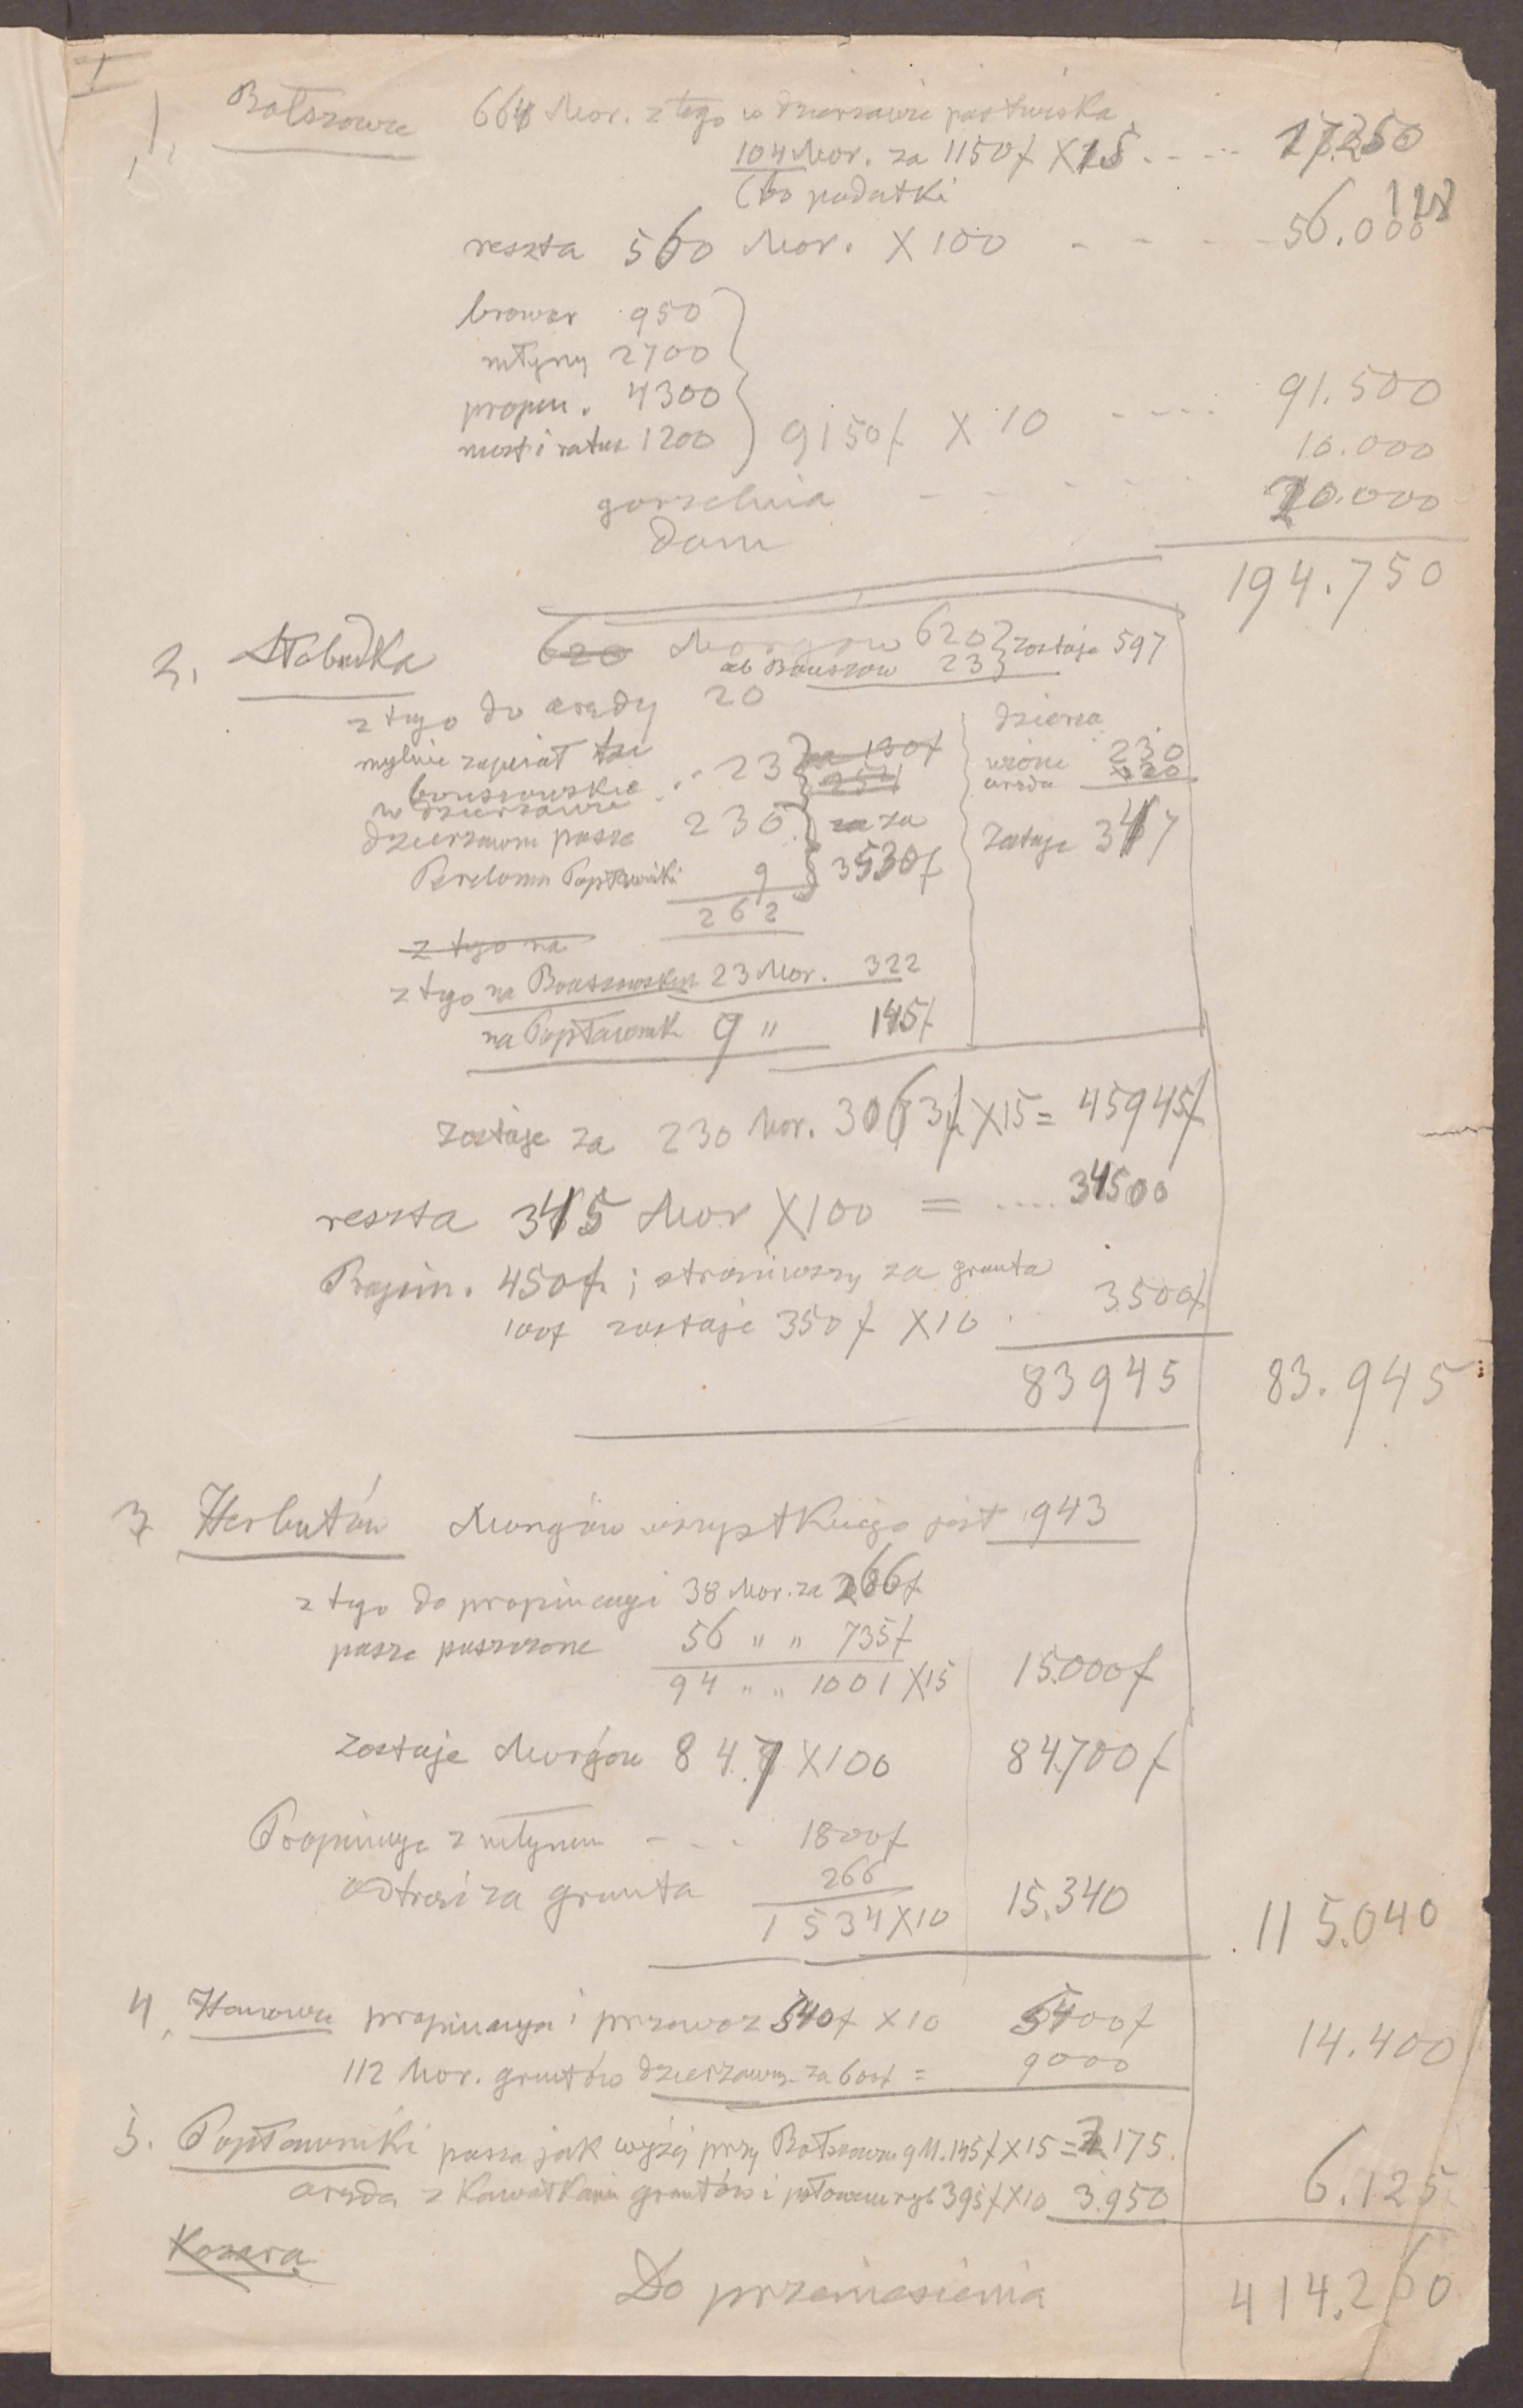 I
1. Bołszowce 664 Mor. z tego w dzierżawie pastwiska
104 Mor. za 1150f X 15 . - - - - 17.250
(bo podatki
128
reszta 560 Mor. X 100 - - - - 56.000
browar 950
młyny 2700
propin. 4300
most i ratusz 1200 } 9150f X 10 - - - - 91.500
gorzelnia - - - - - 10.000
dom 20.000
194.750
2. Słobudka 620 Morgów 620 } zostaje 597
ab Bouszow 23
z tego do arędy 20
mylnie zapisał
bouszowskie .. 23 za 130f
254
w dzierżawie
dzierżawom pasze 230 za
9 3530f
262
dzierża
230
aręda 20
Zostaje 347
z tego na
z tego na Bouszowskim 23 Mor. 322
na Popławnik 9 " 145f
zostaje za 230 Mor. 3063f X 15 = 45945f
reszta 345 Mor X 100 = .... 34500
Propin. 450f ; za grunta
100f zostaje 350f X 10 . 3.500f
83945 83.945
3 Herbutów Morgów wszystkiego jest 943
z tego do propinacyi 38 Mor. za 266f
pasze puszczone 56 " " 735f
94 " " 1001 X 15 15.000f
zostaje Morgów 847 X 100 84.700f
Propinacya z młynem - . . 1800f
odtrąci za grunta 266
1534 X 10 15.340 115.040
4. Hanowce propinacya i przewoz 540f X 10 5400f
112 Mor. gruntów dzierzawn. za 600f = 9000 14.400
5. Popławniki pasza jak wyżej przy Bołszowcu 9 M. 145f X 15 = 2175.
aręda z kawałkami gruntów i połowem ryb 395f X 10 3.950 6.125
Kozara
Do przeniesienia 414.260